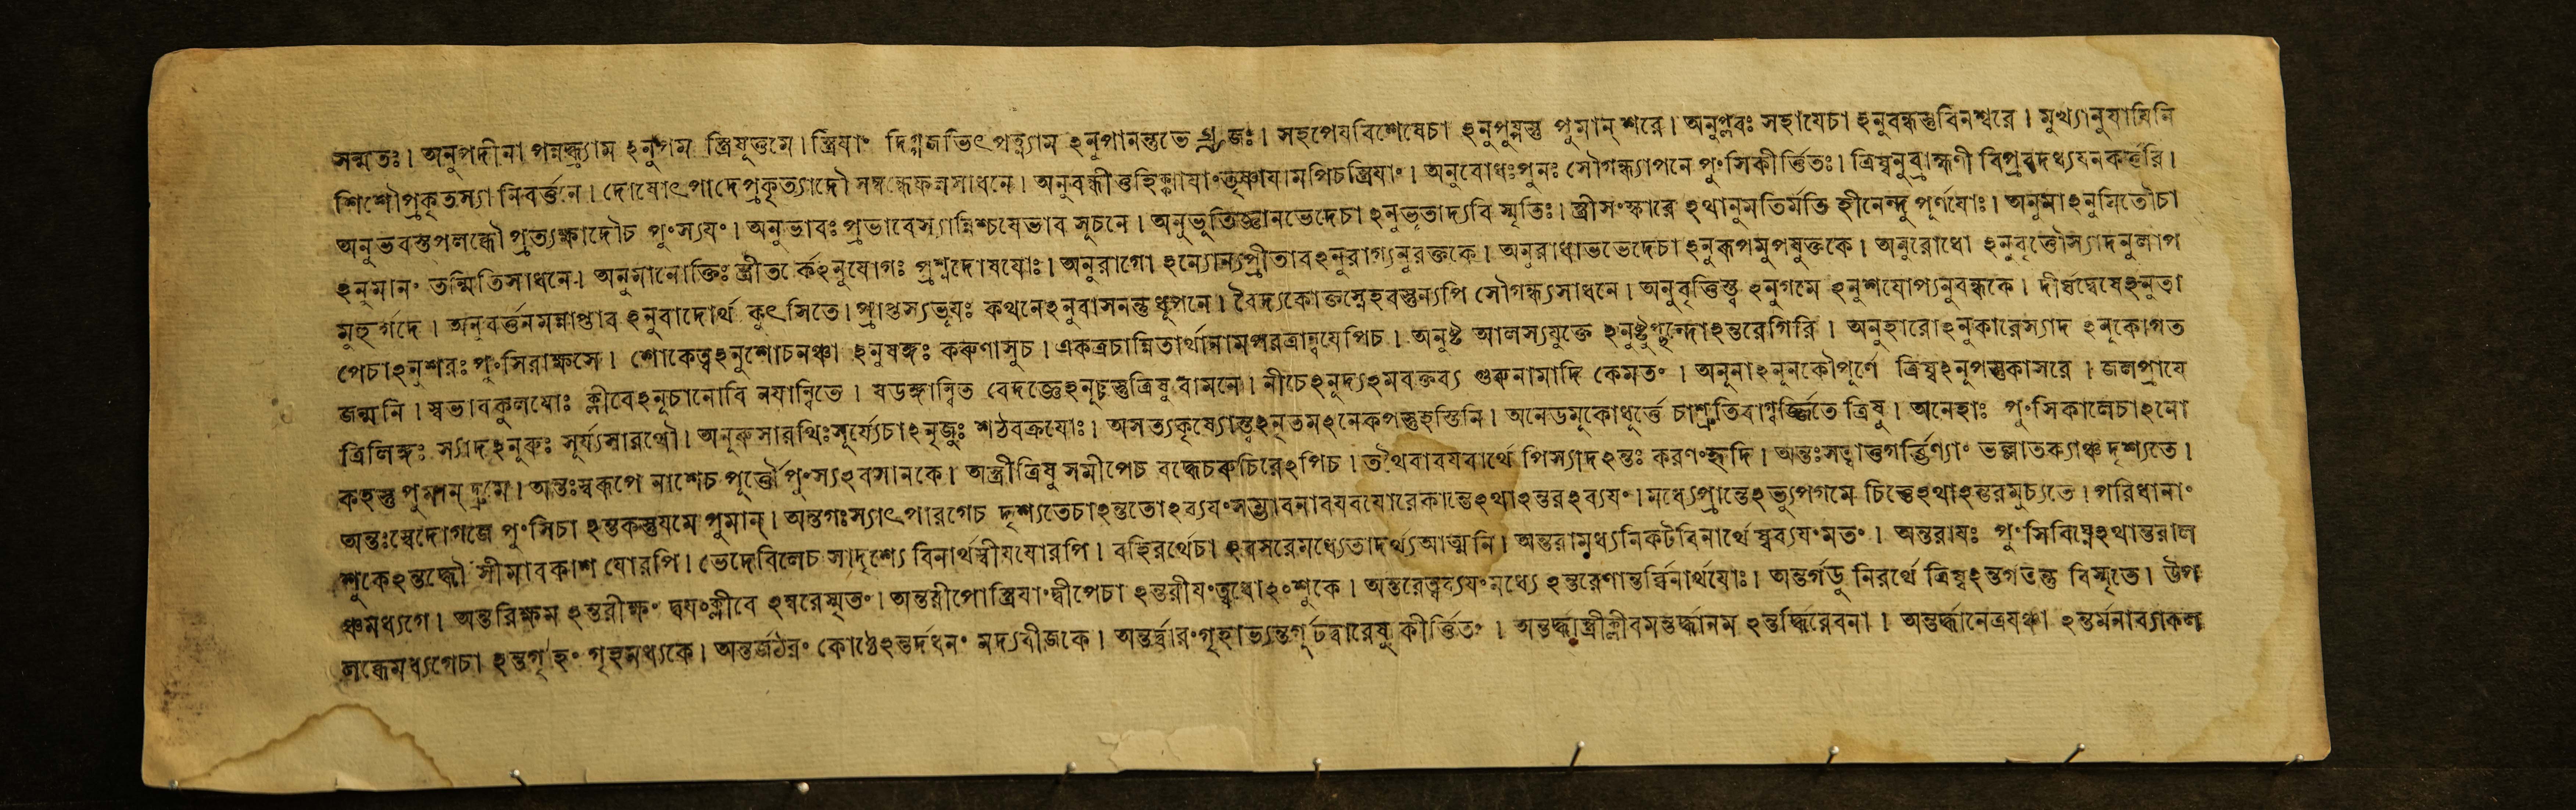 সন্মতঃ। অনুপদীনা পন্নদ্ধ্য্রাম ঽনুপম স্ত্রিষুত্তমে। স্ত্রিযা° দিগ্গজভিৎপত্ন্যাম ঽনুপানন্তুভেষজঃ। সহপেযবিশেষেচা ঽনুপুষ্পস্তু পুমান্ শরে। অনুপ্লবঃ সহাযেচা ঽনুবন্ধস্তুবিনশ্বরে। মুখ্যানুযাযিনি
শিশৌপ্রকৃতস্যা নিবর্ত্তনে। দোষোৎপাদেপ্রকৃত্যাদৌ সম্বন্ধেফলসাধনে। অনুবন্ধীত্তুহিক্কাযা°তৃষ্ণাযামপিচস্ত্রিযা°। অনুবোধঃপুনঃ সৌগন্ধ্যাপনে পু°সিকীর্ত্তিতঃ। ত্রিষ্বনুব্রাহ্মণী বিপ্রবদথ্যযনকর্ত্তরি।
অনুভবস্তুপলব্ধৌ প্রত্যক্ষাদৌচ পু°স্যয°। অনুভাবঃ প্রভাবেস্যান্নিশ্চযেভাব সূচনে। অনুভূতিজ্ঞানভেদেচা ঽনুভূতাদ্যবি স্মৃতিঃ। স্ত্রীস°স্কারে ঽথানুমতির্মতি হীনেন্দু পূর্ণযোঃ। অনুমাঽনুমিতৌচা
ঽনুমান° তন্মিতিসাধনে। অনুমানোক্তিঃ স্ত্রীতর্কেঽনুযোগঃ প্রশ্নদোষযোঃ। অনুরাগো ঽন্যোন্যপ্রীতাব ঽনুরাগ্যনুরক্তকে। অনুরাধাভভেদেচা ঽনুরূপমুপযুক্তকে। অনুরোধো ঽনুবৃত্তৌস্যাদনুলাপ
মুহুর্গদে। অনুবর্ত্তনমন্নাপ্তাব ঽনুবাদোর্থ কুৎসিতে। প্রাপ্তস্যভূযঃ কথনেঽনুবাসনন্তু ধূপনে। বৈদ্যকোক্তস্নেহবস্তুন্যপি সৌগন্ধ্যসাধনে। অনুবৃত্তিস্ত্ব ঽনুগমে ঽনুশযোপ্যনুবন্ধকে। দীর্ঘদ্বেষেঽনুতা
পেচাঽনুশরঃ পু°সিরাক্ষসে। শোকেত্বঽনুশোচনঞ্চা ঽনুষঙ্গঃ করুণাসুচ। একত্রচান্নিতার্থানামপরত্রান্বযেপিচ। অনুষ্ট আলস্যযুক্তে ঽনুষ্টুপ্ছন্দোঽন্তরেগিরি। অনুহারোঽনুকারেস্যাদ ঽনূকোগত
জন্মনি। স্বভাবকুলযোঃ ক্লীবেঽনূচানোবি নযান্বিতে। ষডঙ্গান্বিত বেদজ্ঞেঽনূচস্তুত্রিষু বামনে। নীচেঽনূদ্যঽমবক্তব্য গুরুনামাদি কেমত°। অনূনাঽনূনকৌপূর্ণে ত্রিষ্বঽনূপস্তুকাসরে। জলপ্রাযে
ত্রিলিঙ্গঃ স্যাদঽনূরুঃ সূর্য্যসারথৌ। অনূরুসারথিঃসূর্য্যেচাঽনৃজুঃ শঠবক্রযোঃ। অসত্যকৃষ্যোস্ত্বঽনৃতমঽনেকপস্তুহস্তিনি। অনেডমূকোধূর্ত্তে চাশ্রুতিবাগ্বর্জ্জিতে ত্রিষু। অনেহাঃ পু°সিকালেচাঽনো
কহস্তু পুমান্ দ্রুমে। অন্তঃস্বরূপে নাশেচ পূর্ত্তৌ পু°স্যঽবসানকে। অস্ত্রীত্রিষু সমীপেচ বদ্ধেচরুচিরেঽপিচ। তথৈবাবযবার্থে পিস্যাদঽন্তঃ করণ°হৃদি। অন্তঃসত্ত্বাত্তুগর্ব্ভিণ্যা° ভল্লাতক্যাঞ্চ দৃশ্যতে।
অন্তঃস্বেদোগজে পু°সিচা ঽন্তকস্তুযমে পুমান্। অন্তগঃস্যাৎপারগেচ দৃশ্যতেচাঽন্ততোঽব্যয°সম্ভাবনাবযবযোরেকান্তেঽথাঽন্তরঽব্যয°। মধ্যেপ্রান্তেঽভ্যুপগমে চিত্তেঽথাঽন্তরমুচ্যতে। পরিধানা°
শুকেঽন্তর্দ্ধৌ সীমাবকাশ যোরপি। ভেদেবিলেচ সাদৃশ্যে বিনার্থস্বীযযোরপি। বহিরর্থেচা ঽবসরেমধ্যেতাদর্থ্যআত্মনি। অন্তরামধ্যনিকটবিনার্থে ষ্বব্যয°মত°। অন্তরাযঃ পু°সিবিঘ্নেঽথান্তরাল
ঞ্চমধ্যগে। অন্তরিক্ষম ঽন্তরীক্ষ° দ্বয°ক্লীবে ঽম্বরেস্মৃত°। অন্তরীপোস্ত্রিযা°দ্বীপেচা ঽন্তরীয°ত্বধোঽ°শুকে। অন্তরেত্বব্যয°মধ্যে ঽন্তরেণান্তর্ব্বিনার্থযোঃ। অন্তর্গডু নিরর্থে ত্রিষ্বঽন্তর্গতন্তু বিস্মৃতে। উপ
লব্ধেমধ্যগেচা ঽন্তর্গৃহ° গৃহমধ্যকে। অন্তর্জঠর° কোষ্ঠেঽন্তর্দধন° মদ্যবীজকে। অন্তর্দ্বার°গৃহাভ্যন্তর্গূঢদ্বারেষু কীর্ত্তিত°। অন্তর্দ্ধাস্ত্রীক্লীবমন্তর্দ্ধানম ঽন্তর্দ্ধিরেবনা। অন্তর্দ্ধানেত্রযঞ্চা ঽন্তর্মনাব্যাকল